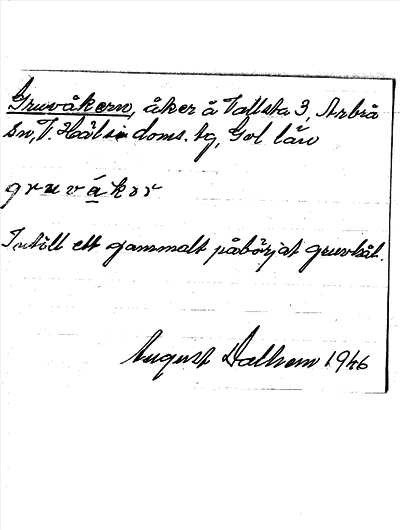 Gruvåkern, åker å Vallsta 3, Arbrå
sn, V. Häls:s doms. tg, Gvl län
gruvåkər
Intill ett gammalt påbörjat gruvhål.
August Dalhem 1946